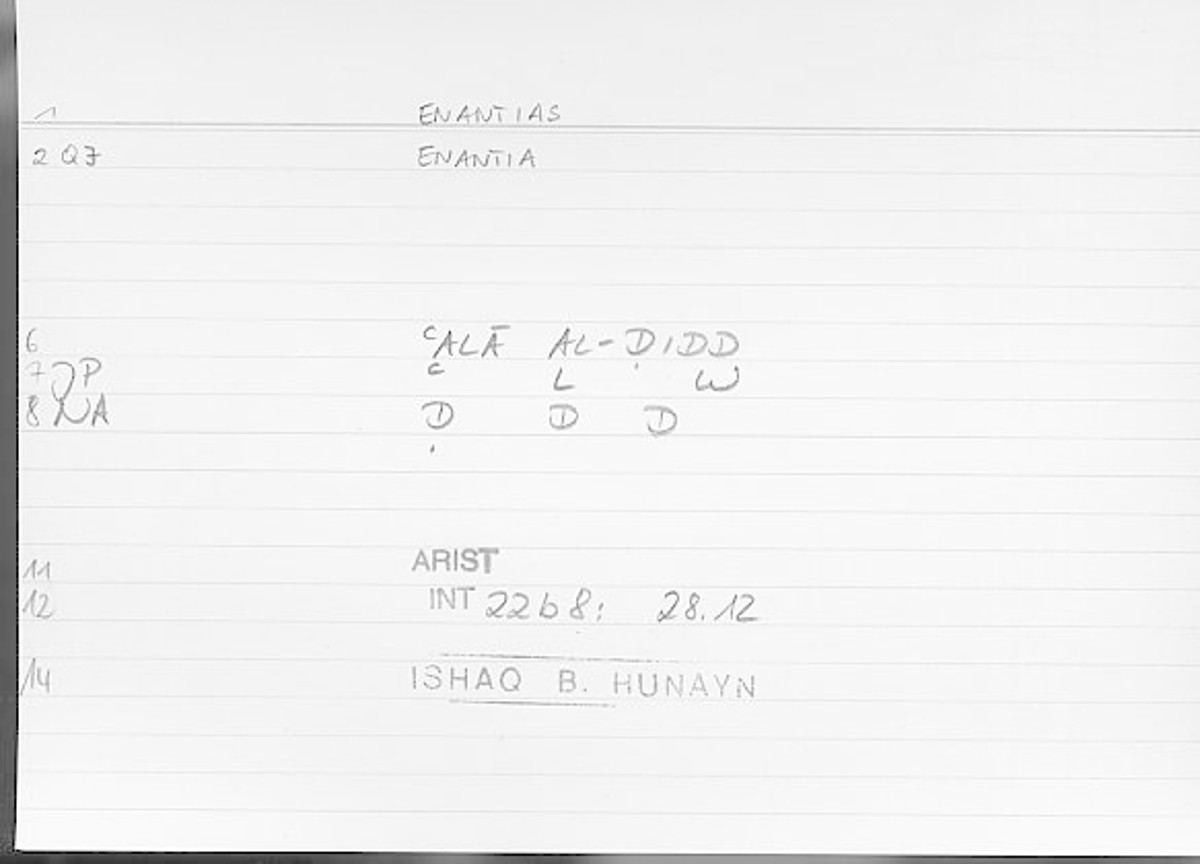 1 ENANTIAS
2 QZ ENANTIA
6 ʿALĀ AL-ḌIDD
7 JP ʿ L W
8 NA Ḍ D D
11 ARIST
12 INT 22b8: 28.12
14 ISHAQ B. HUNAYN